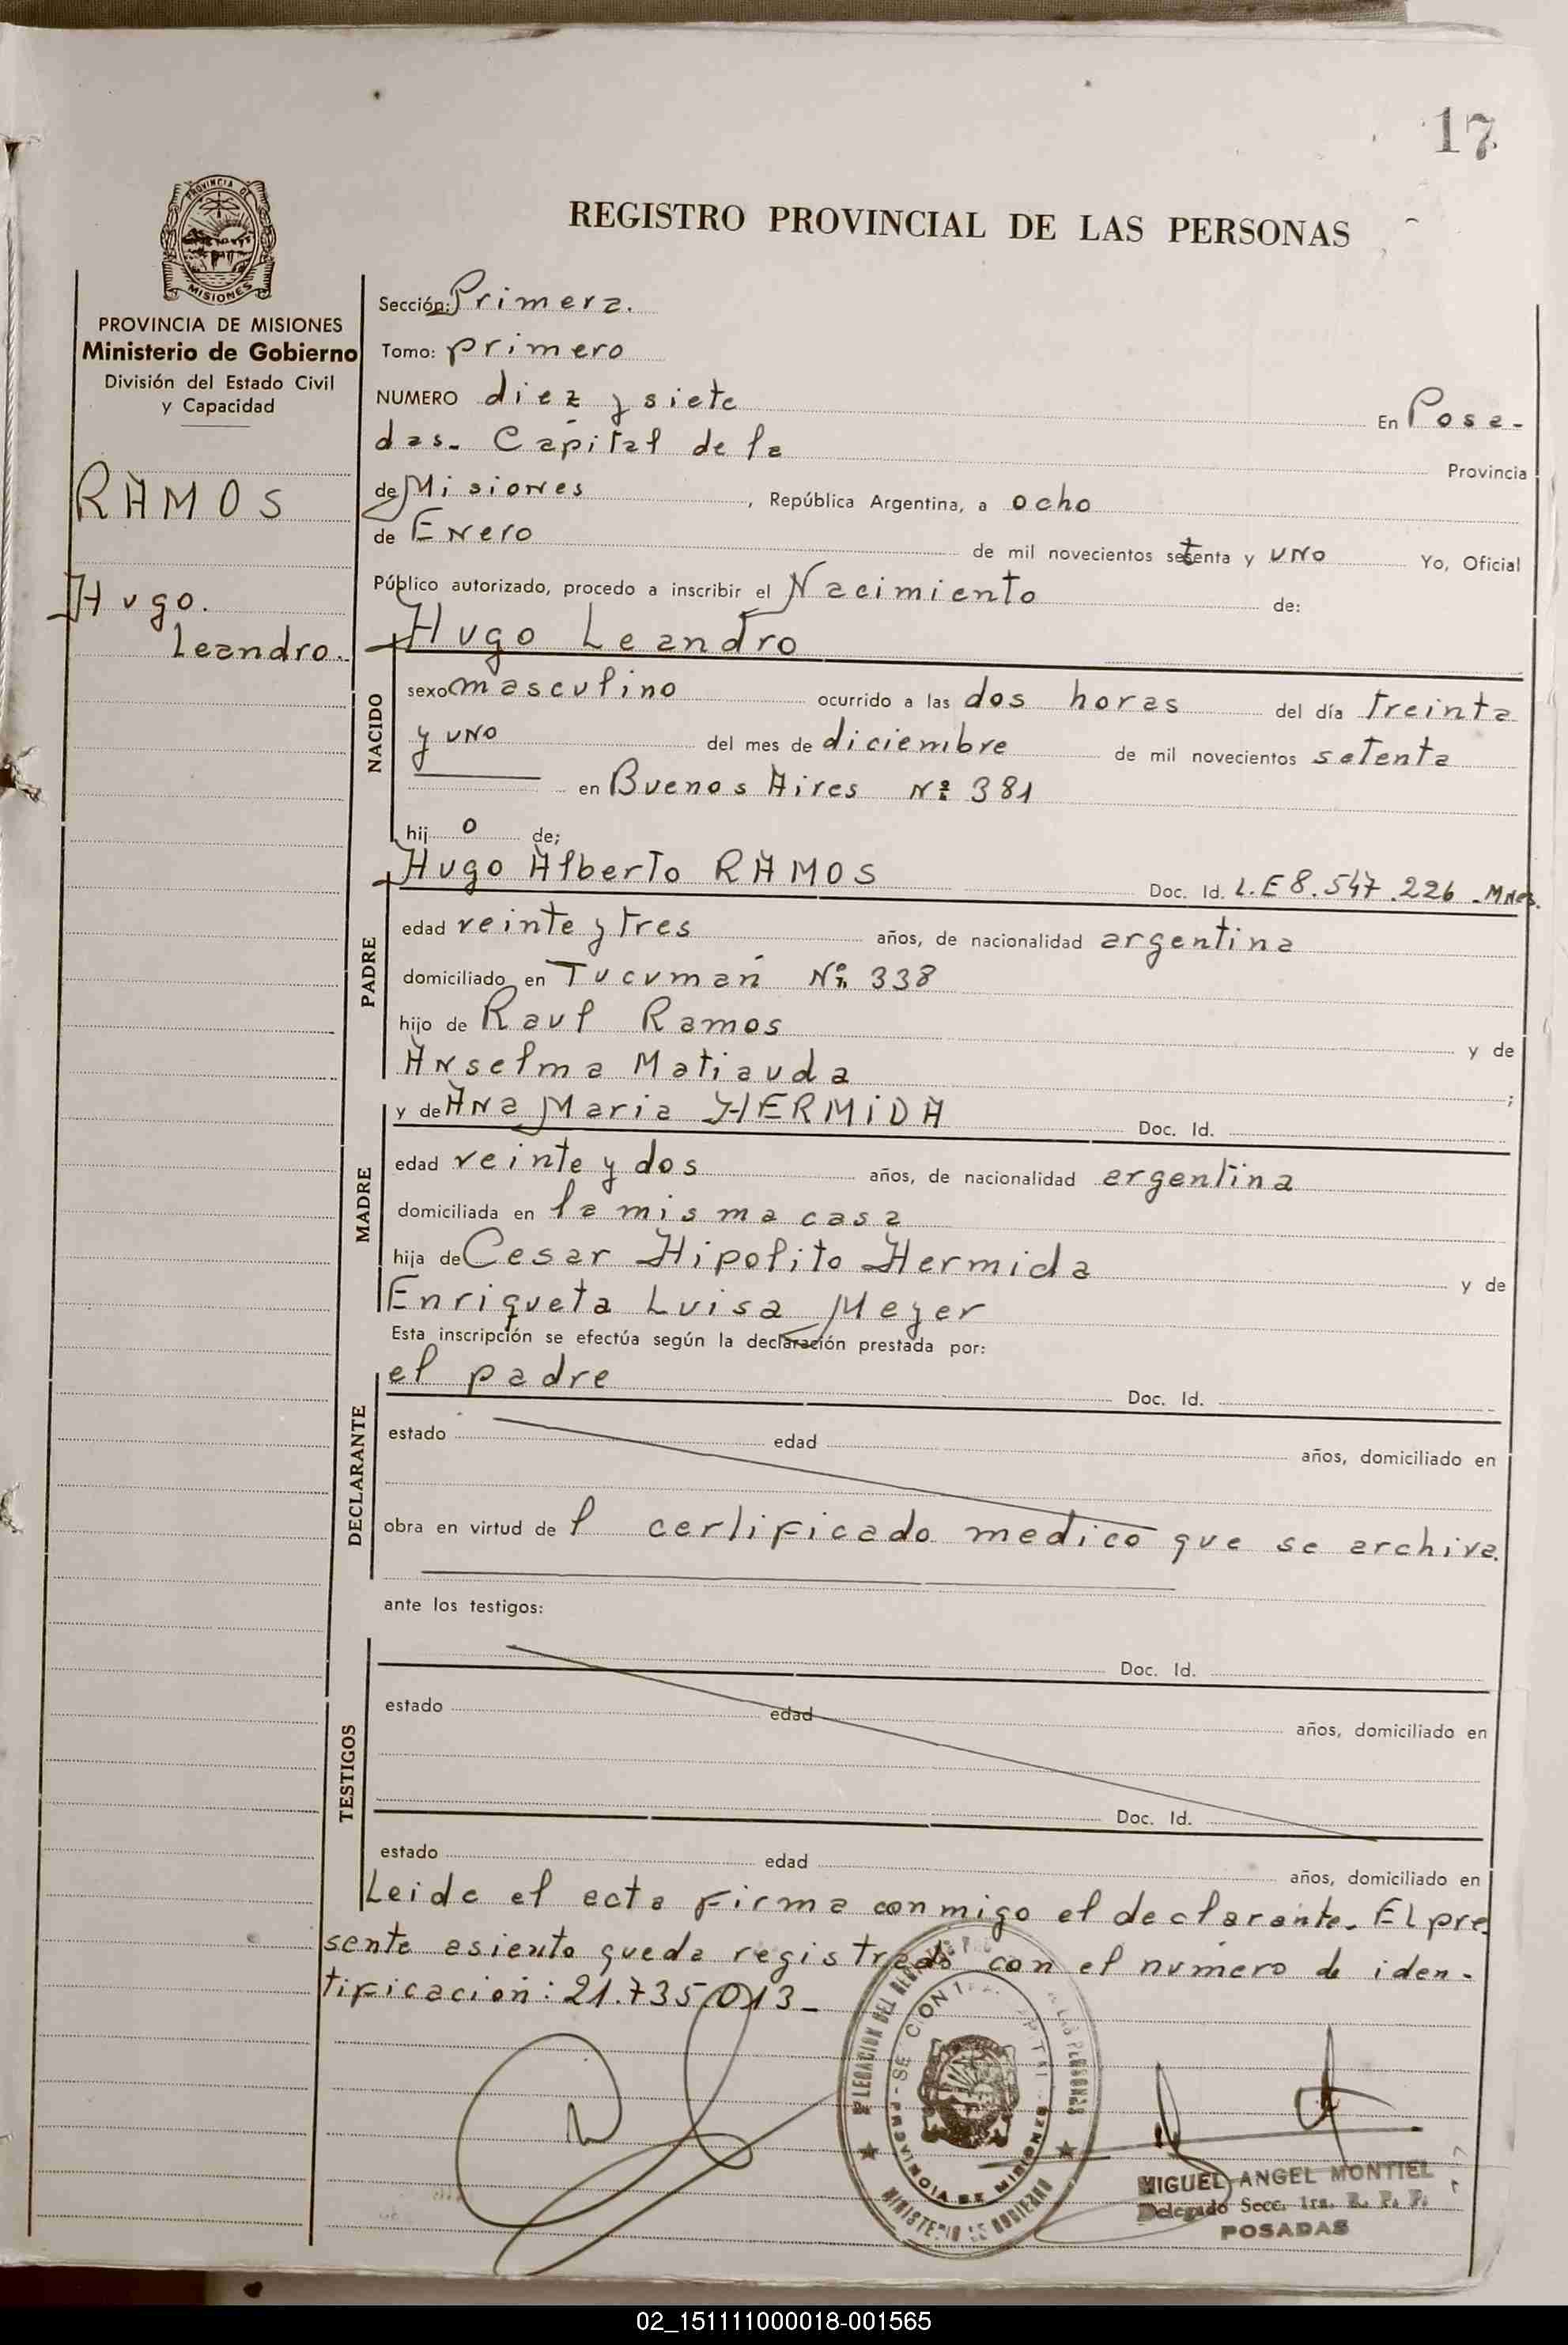 17
REGISTRO PROVINCIAL DE LAS PERSONAS
PROVINCIA DE
MISIONES
PROVINCIA DE MISIONES
Ministerio de Gobierno
División del Estado Civil
y Capacidad
RAMOS
Hugo.
Leandro.
Sección: Primera.
Tomo: primero
NUMERO diez y siete En Posa-
das. Capital de la Provincia
de Misiones, República Argentina, a ocho
de Enero de mil novecientos setenta y uno Yo, Oficial
Público autorizado, procedo a inscribir el Nacimiento de:
Hugo Leandro
NACIDO
sexo masculino ocurrido a las dos horas del día treinta
y uno del mes de diciembre de mil novecientos setenta
en Buenos Aires Nº 381
hij o de;
Hugo Alberto RAMOS Doc. Id. L.E 8.547.226 - Mnes.
PADRE
edad veinte y tres años, de nacionalidad argentina
domiciliado en Tucumań Nº 338
hijo de Raul Ramos y de
Anselma Matiauda ;
y de Ana Maria HERMIDA Doc. Id.
MADRE
edad veinte y dos años, de nacionalidad argentina
domiciliada en la misma casa
hija de Cesar Hipolito Hermida y de
Enriqueta Luisa Meyer
Esta inscripción se efectúa según la declaración prestada por:
el padre Doc. Id.
DECLARANTE
estado edad años, domiciliado en
obra en virtud de l certificado medico que se archiva.
ante los testigos:
Doc. Id.
TESTIGOS
estado edad años, domiciliado en
Doc. Id.
estado edad años, domiciliado en
Leida el acta firma conmigo el declarante. El pre
sente asiento queda registrado con el número de iden-
tificación: 21.735.013_
PROVINCIA DE MISIONES
MINISTERIO DE GOBIERNO
MIGUEL ANGEL MONTIEL
Delegado Secc. 1ra. R. P. P.
POSADAS
02_151111000018-001565